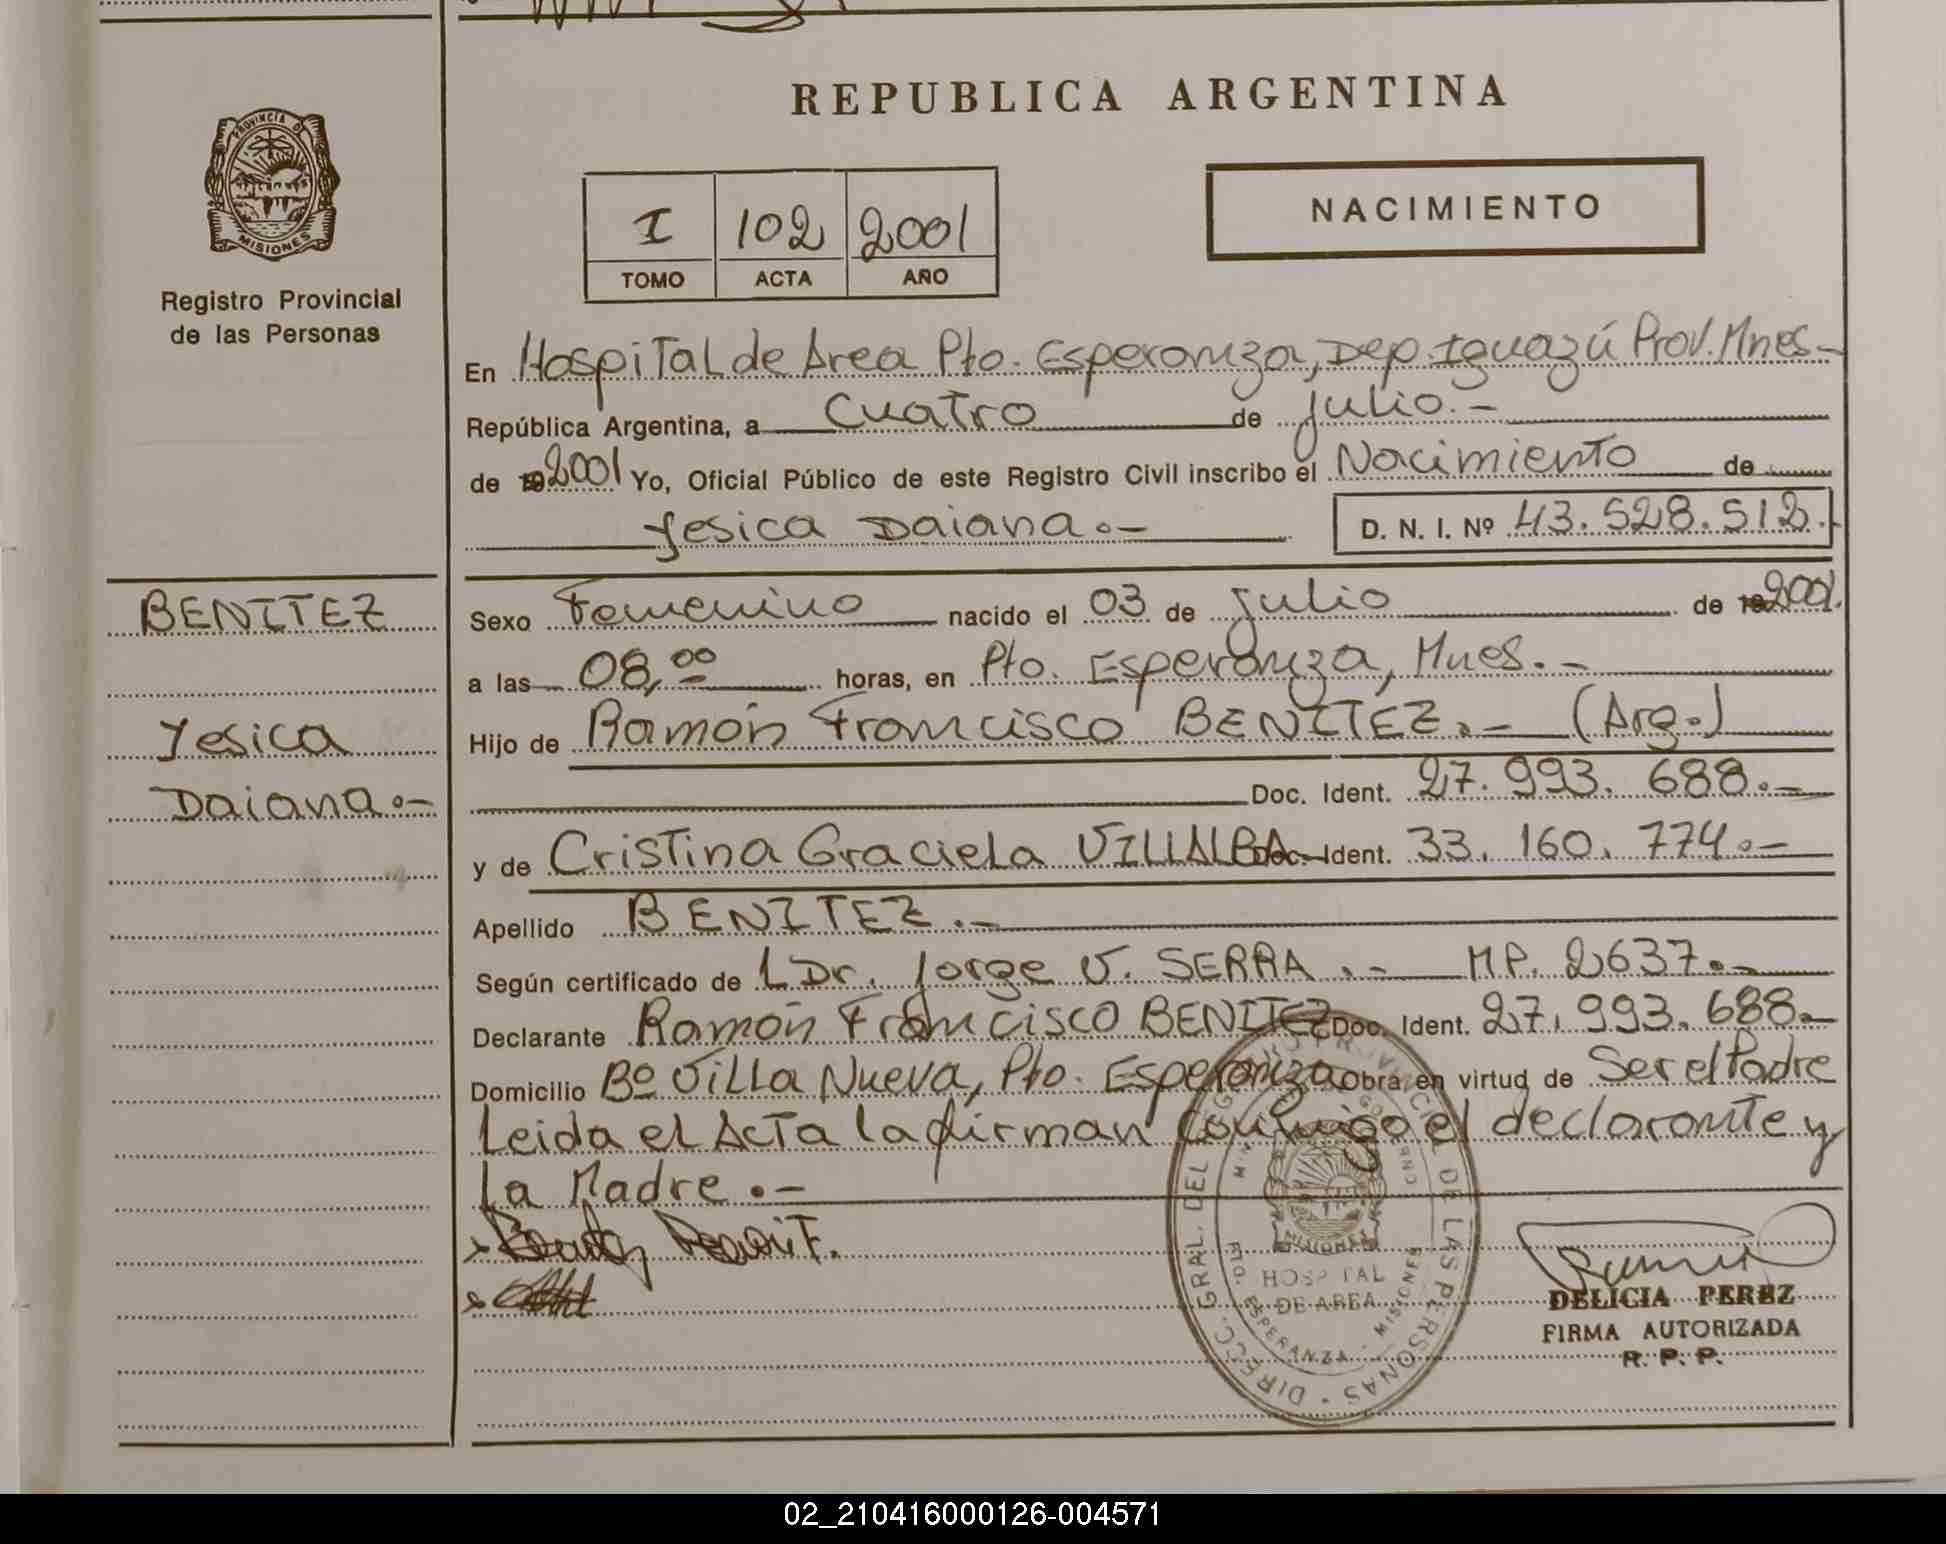 REPUBLICA ARGENTINA
PROVINCIA DE
MISIONES
Registro Provincial
de las Personas
I 102 2001
TOMO ACTA AÑO
NACIMIENTO
En Hospital de Area Pto. Esperanza, Dep. Iguazú Prov. Mnes.-
República Argentina, a cuatro de julio.-
de 192001 Yo, Oficial Público de este Registro Civil inscribo el Nacimiento de
Yesica Daiana.- D. N. I. Nº 43.528.512.
BENITEZ
Yesica
Daiana.-
Sexo Femenino nacido el 03 de julio de 192001.
a las 08,00 horas, en Pto. Esperanza, Mnes.-
Hijo de Ramón Francisco BENITEZ.- (Arg.)
Doc. Ident. 27.993.688.-
y de Cristina Graciela VILLALBA.- Doc. Ident. 33.160.774.-
Apellido BENITEZ.-
Según certificado de L Dr. Jorge V. SERRA.- MP. 2637.-
Declarante Ramón Francisco BENITEZ Doc. Ident. 27.993.688.-
Domicilio Bº Villa Nueva, Pto. Esperanza Obra en virtud de Ser el Padre
Leida el Acta la firman conmigo el declarante y
la Madre.-
DIRECC. GRAL. DEL REGISTRO PROVINCIAL DE LAS PERSONAS
MISIONES
HOSPITAL
DE AREA
PTO. ESPERANZA - MISIONES
DELICIA PEREZ
FIRMA AUTORIZADA
R. P. P.
02_210416000126-004571